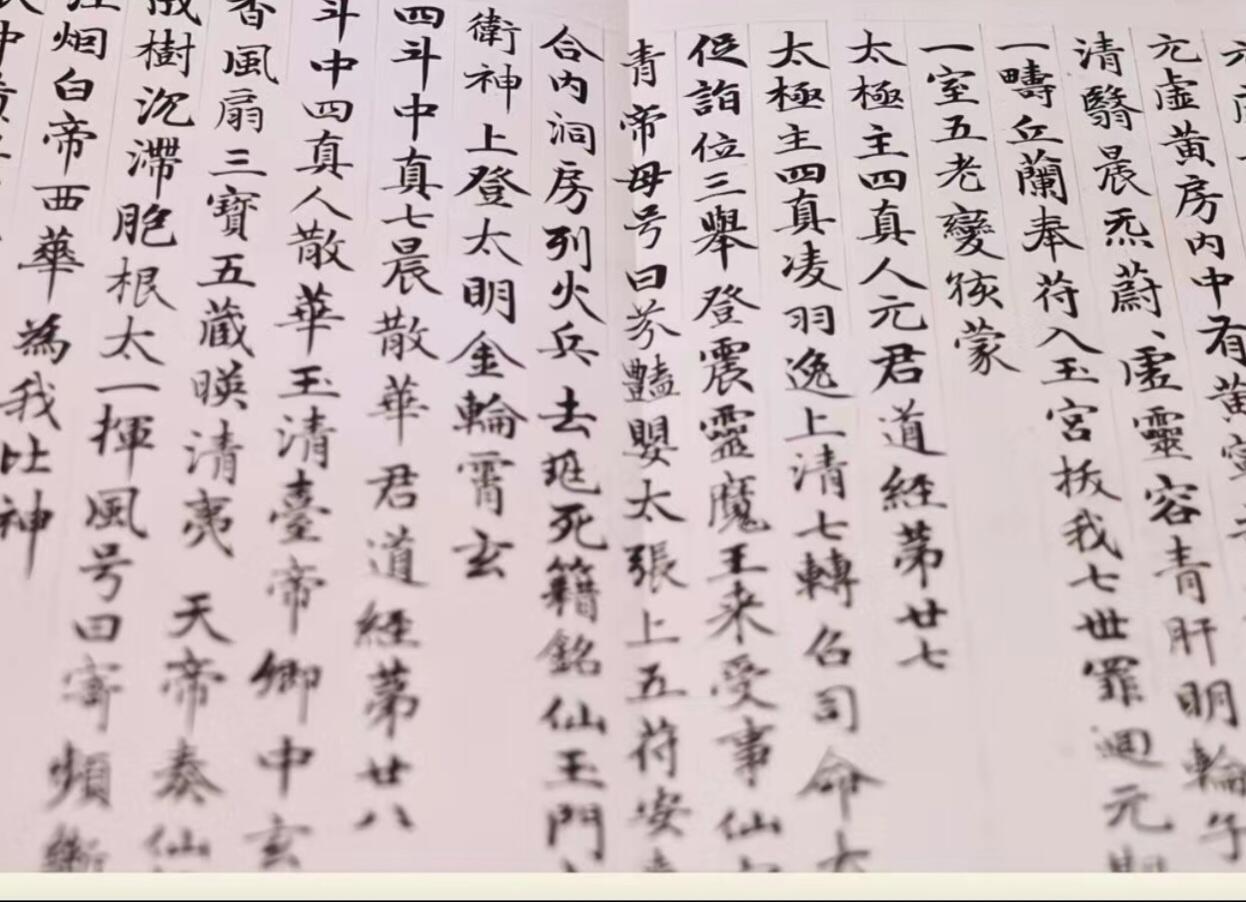 有黄
元虚黄房内中
清翳晨炁蔚、虚靈容青肝明輪
一疇丘蘭奉苻入玉宮拔我七世罪迴元
一室五老變孩蒙
太極主四真人元君道經第廿七
太極主四真凌羽逸上清七轉召司命
促詣位三舉登震靈魔王来受事仙
青帝母号曰芥豔嬰太張上五苻安
合内洞房列火兵去死籍銘仙玉門
衛神上登太明金輪霄玄
四斗中真七晨散華君道經第廿八
斗中四真人散華玉清臺帝卿中玄
香風扇三寶五藏暎清夷天帝奏仙
樹沉滯胞根太一揮風号曰寄頻
烟白帝西華為我比神